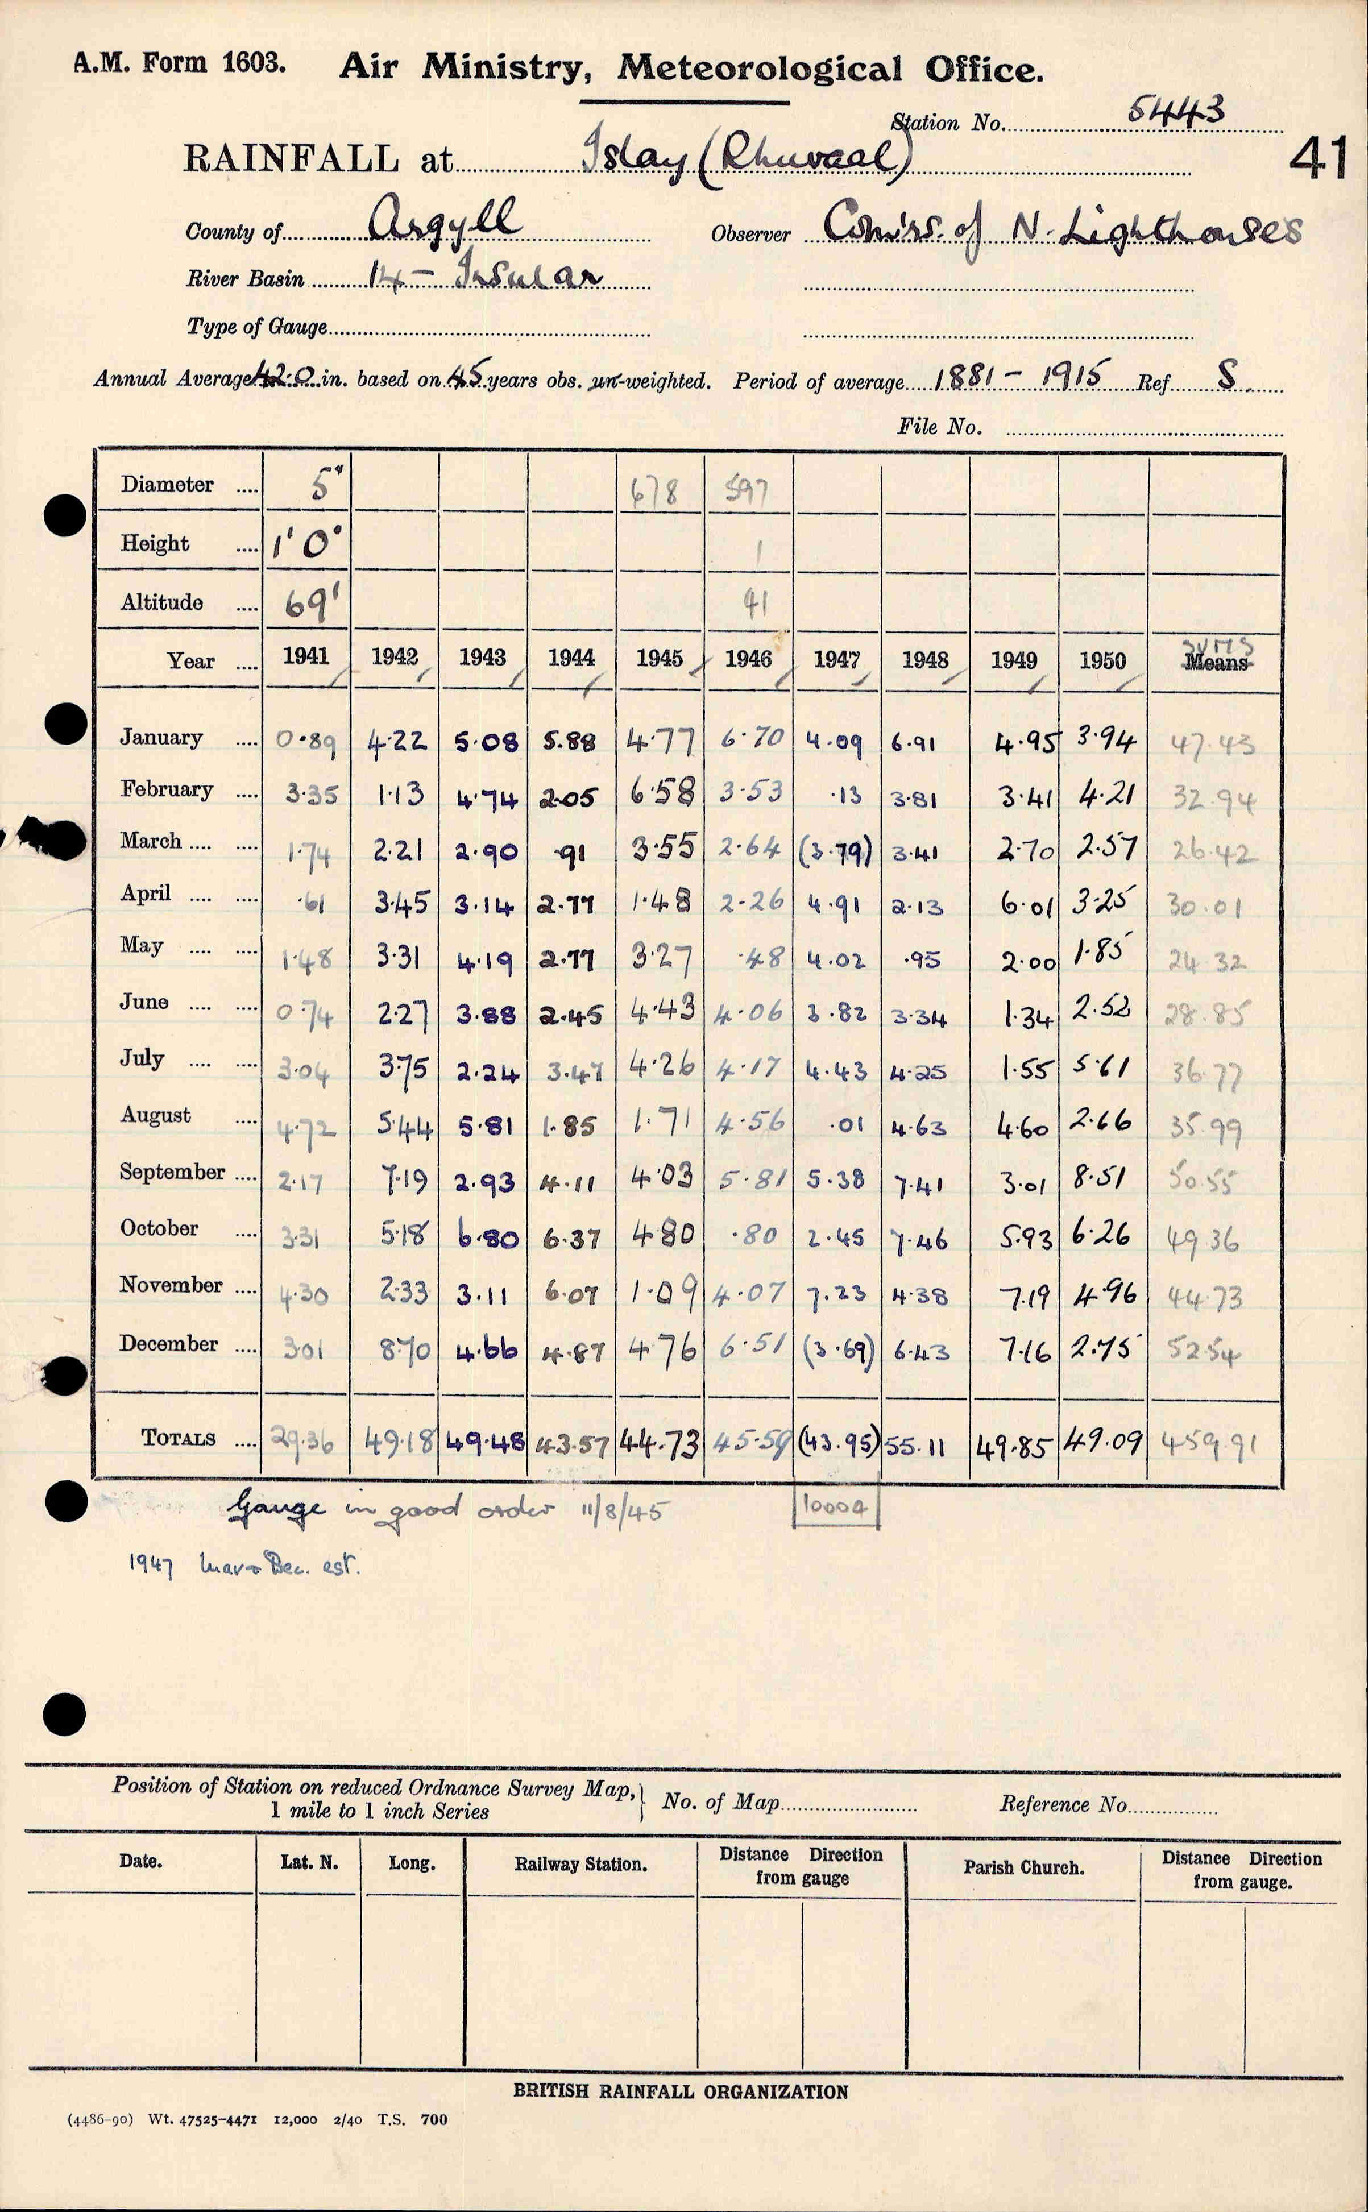 A.M. Form 1603. Air Ministry, Meteorological Office.
Station No. 5443
RAINFALL at Islay (Rhuvaal)
41
County of Argyll Observer Comirs. of N. Lighthouses
River Basin 14 - Insular
Type of Gauge
Annual Average 42.0 in. based on 45 years obs. un-weighted. Period of average 1881 - 1915 Ref S
File No.
Diameter .... 5" 678 597
Height .... 1' 0" 1
Altitude .... 69' 41
Year .... 1941 1942 1943 1944 1945 1946 1947 1948 1949 1950 Means SUMS
January .... 0.89 4.22 5.08 5.88 4.77 6.70 4.09 6.91 4.95 3.94 47.43
February .... 3.35 1.13 4.74 2.05 6.58 3.53 .13 3.81 3.41 4.21 32.94
March .... .... 1.74 2.21 2.90 .91 3.55 2.64 (3.79) 3.41 2.70 2.57 26.42
April .... .... .61 3.45 3.14 2.77 1.48 2.26 4.91 2.13 6.01 3.25 30.01
May .... .... 1.48 3.31 4.19 2.77 3.27 .48 4.02 .95 2.00 1.85 24.32
June .... .... 0.74 2.27 3.88 2.45 4.43 4.06 3.82 3.34 1.34 2.52 28.85
July .... .... 3.04 3.75 2.24 3.47 4.26 4.17 4.43 4.25 1.55 5.61 36.77
August .... 4.72 5.44 5.81 1.85 1.71 4.56 .01 4.63 4.60 2.66 35.99
September .... 2.17 7.19 2.93 4.11 4.03 5.81 5.38 7.41 3.01 8.51 50.55
October .... 3.31 5.18 6.80 6.37 4.80 .80 2.45 7.46 5.93 6.26 49.36
November .... 4.30 2.33 3.11 6.07 1.09 4.07 7.23 4.38 7.19 4.96 44.73
December .... 3.01 8.70 4.66 4.87 4.76 6.51 (3.69) 6.43 7.16 2.75 52.54
TOTALS .... 29.36 49.18 49.48 43.57 44.73 45.59 (43.95) 55.11 49.85 49.09 459.91
Gauge in good order 11/8/45 10004
1947 Mar + Dec. est.
Position of Station on reduced Ordnance Survey Map, No. of Map Reference No.
1 mile to 1 inch Series
Date. Lat. N. Long. Railway Station. Distance Direction from gauge Parish Church. Distance Direction from gauge.
BRITISH RAINFALL ORGANIZATION
(4486-90) Wt. 47525-4471 12,000 2/40 T.S. 700